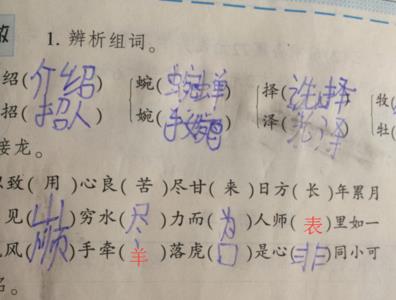 1. 辨析组词。
绍(介绍) 蜿(蜿蜒) 择(选择) 牧(
招(招人) 婉( 泽(光泽) 牡(
接龙。
以致(用)心良(苦)尽甘(来)日方(长)年累月
见(山)穷水(尽)力而(为)人师(表)里如一
风(顺)手牵(羊)落虎(口)是心(非)同小可